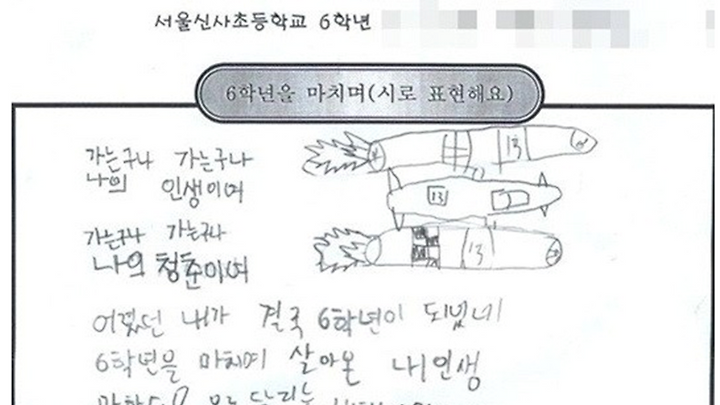 서울신사초등학교 6학년
6학년을 마치며(시로 표현해요)
가는구나 가는구나
나의 인생이여
가는구나 가는구나
나의 청춘이여
어렸던 내가 결국 6학년이 되었네
6학년을 마치며 살아온 내 인생
13
13
13